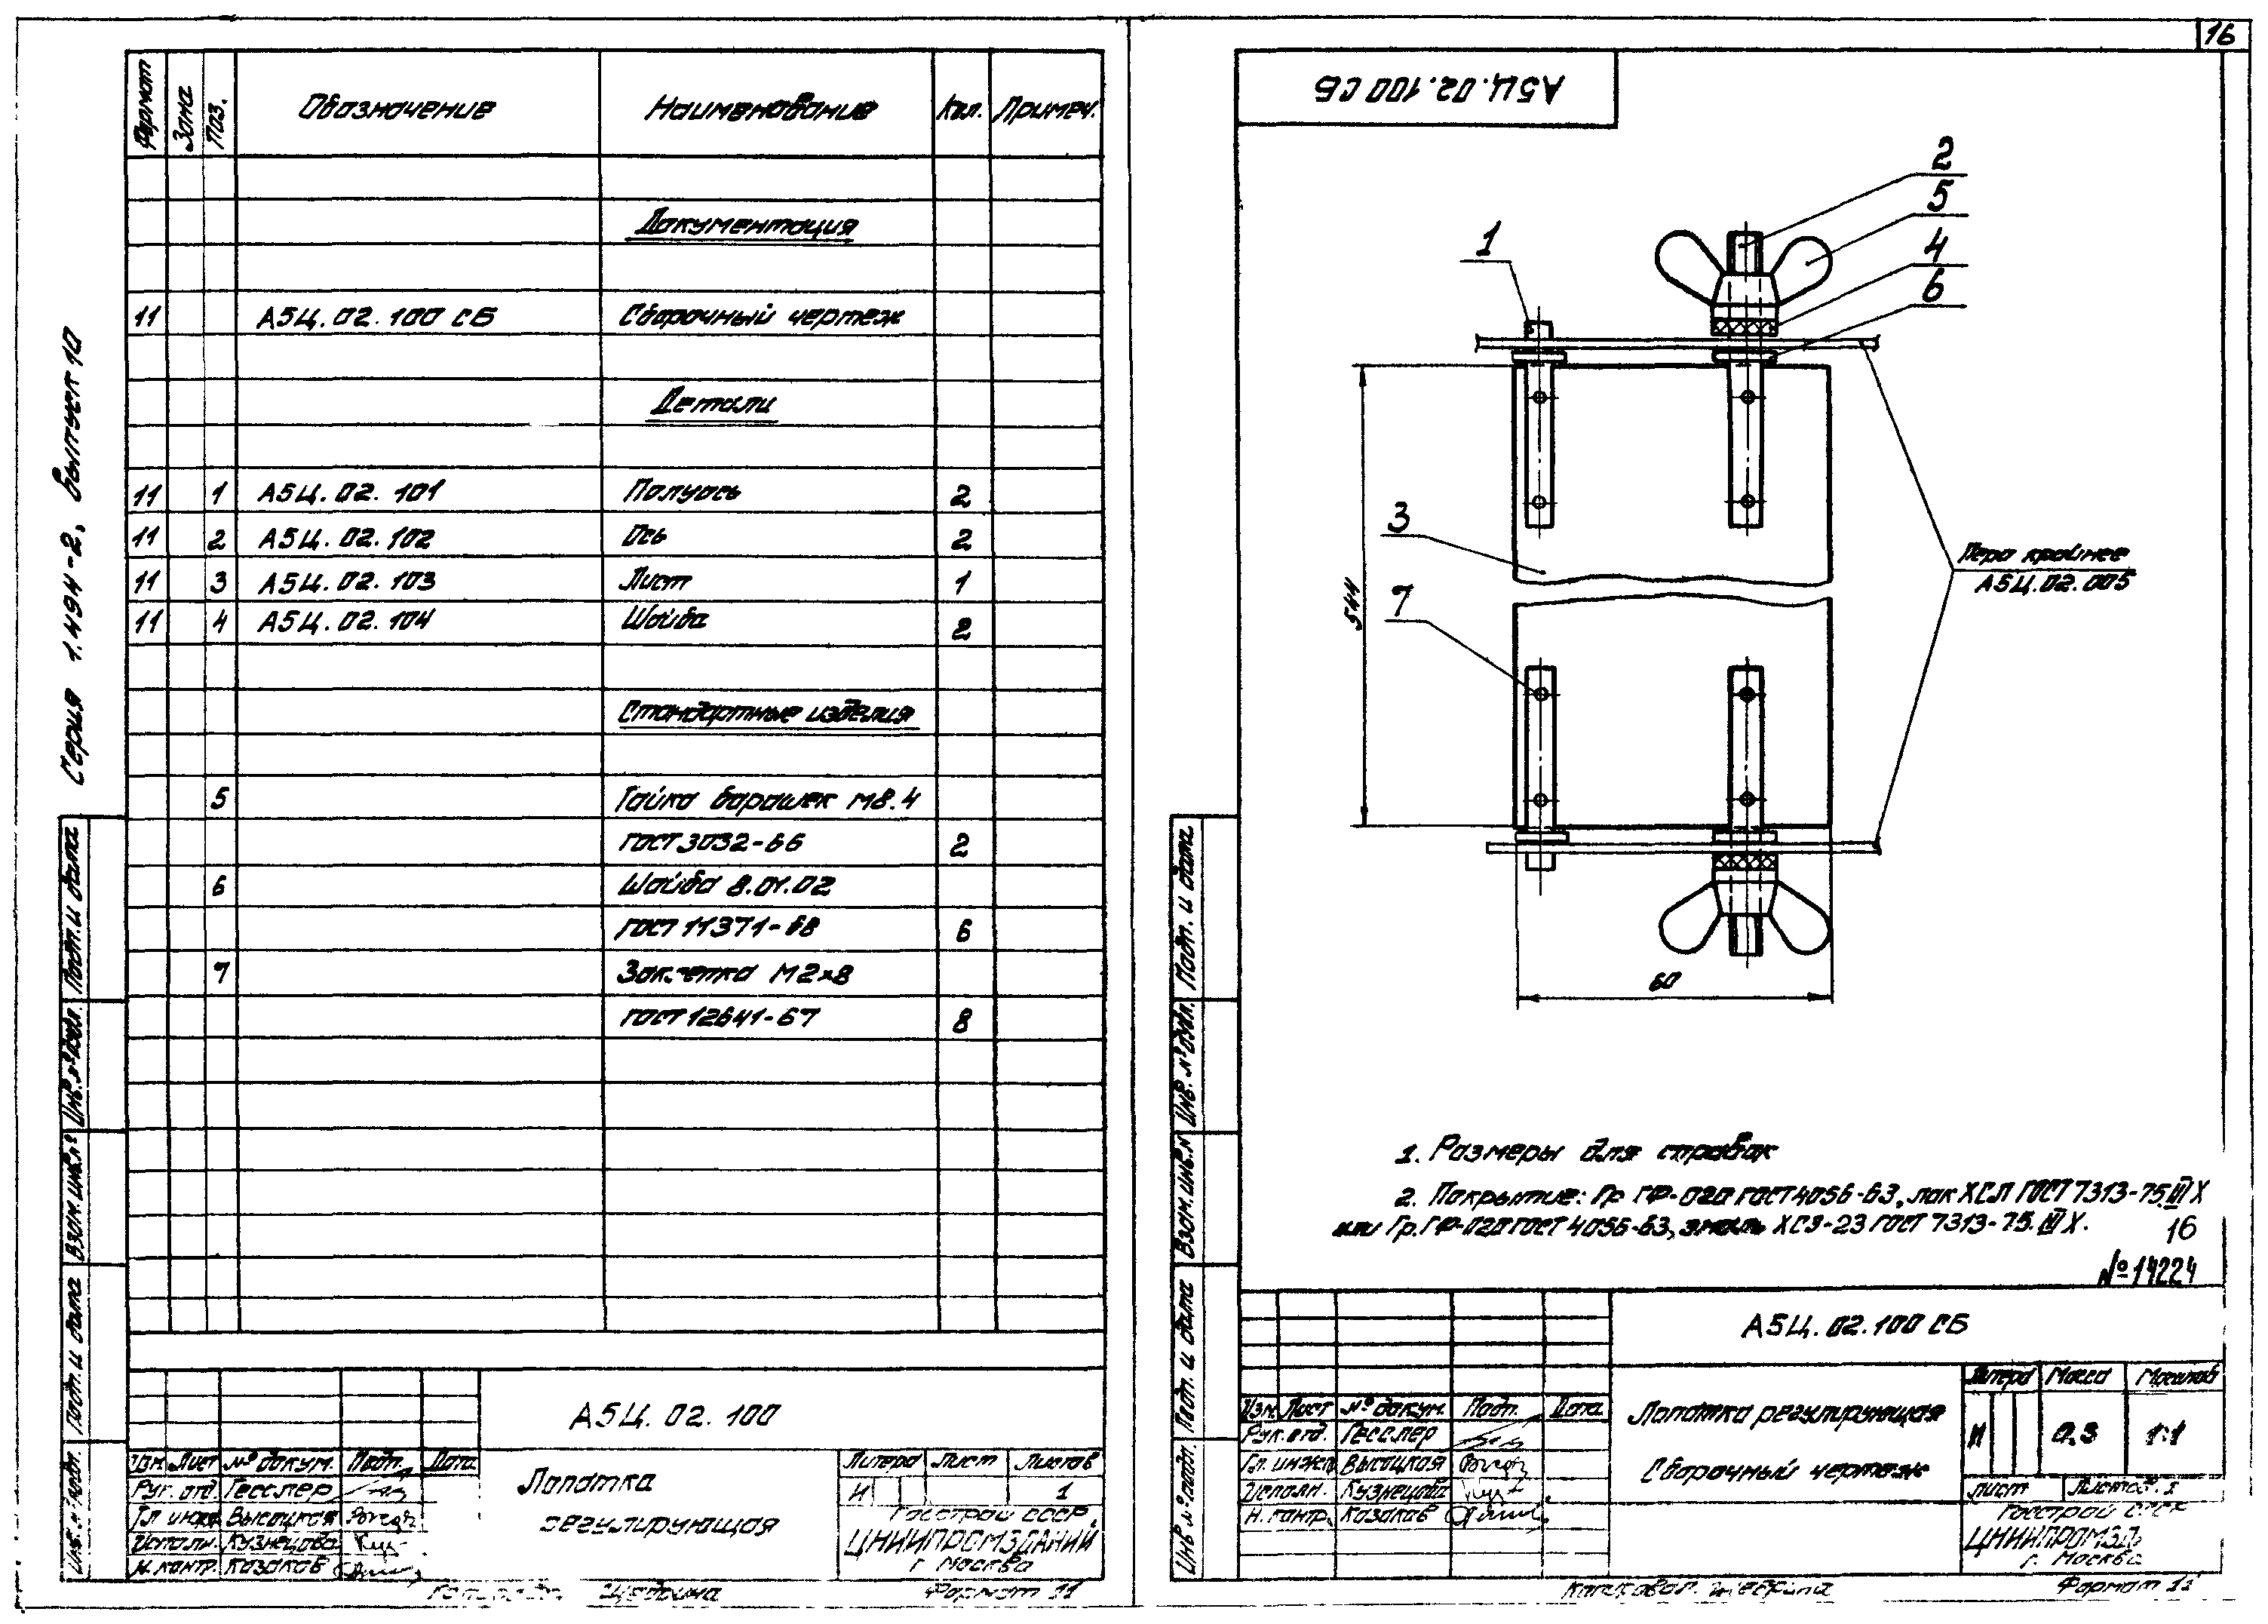 16
Серия 1.494-2, выпуск 10
Формат Зона Поз. Обозначение Наименование Кол. Примеч.
Документация
11 А5Ц.02.100 СБ Сборочный чертеж
Детали
11 1 А5Ц.02.101 Полуось 2
11 2 А5Ц.02.102 Ось 2
11 3 А5Ц.02.103 Лист 1
11 4 А5Ц.02.104 Шайба 2
Стандартные изделия
5 Гайка барашек М8.4
ГОСТ 3032-66 2
6 Шайба 8.01.02
ГОСТ 11371-68 6
7 Заклепка М2х8
ГОСТ 12641-67 8
Подп. и дата
Инв. № дубл.
Взам. инв. №
Подп. и дата
Инв. № подл.
А5Ц.02.100
Изм. Лист № докум. Подп. Дата
Рук. отд. Гесслер
Гл. инж. Высоцкая
Исполн. Кузнецова
Н. контр. Казаков
Лопатка
регулирующая
Литера Лист Листов
И 1
Госстрой СССР
ЦНИИПРОМЗДАНИЙ
г. Москва
Формат 11
А5Ц.02.100 СБ
2
5
4
6
1
3
7
544
60
Перо крайнее
А5Ц.02.005
1. Размеры для справок
2. Покрытие: Гр. ГФ-020 ГОСТ 4056-63, лак ХСЛ ГОСТ 7313-75.III Х
или Гр. ГФ-020 ГОСТ 4056-63, эмаль ХСЭ-23 ГОСТ 7313-75.III Х.
16
№14224
Подп. и дата
Инв. № дубл.
Взам. инв. №
Подп. и дата
Инв. № подл.
А5Ц.02.100 СБ
Изм. Лист № докум. Подп. Дата
Рук. отд. Гесслер
Гл. инж. Высоцкая
Исполн. Кузнецова
Н. контр. Казаков
Лопатка регулирующая
Сборочный чертеж
Литера Масса Масштаб
И 0.3 1:1
Лист Листов 1
Госстрой СССР
ЦНИИПРОМЗД
г. Москва
Копировал. Формат 11